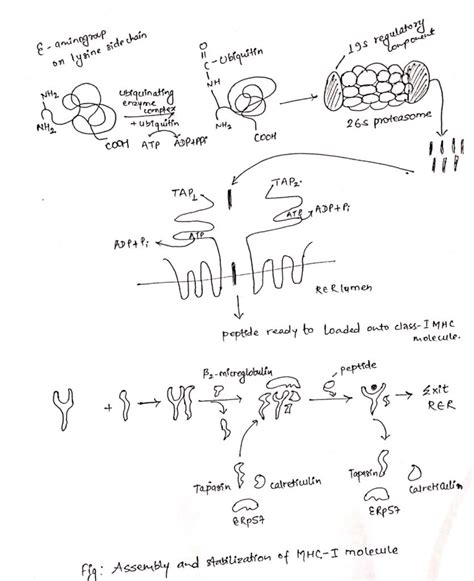 ε-aminogroup
on lysine sidechain
NH₂
NH₂
COOH
ubiquinating
enzyme
complex
+ ubiquitin
ATP
ADP+PPi
O
C-ubiquitin
NH
NH₂
COOH
19s regulatory
component
26s proteasome
TAP₁
TAP₂
ATP
ADP+Pi
ATP
ADP+Pi
RER lumen
peptide ready to loaded onto class-I MHC
molecule.
β₂-microglobulin
peptide
+
Exit
RER
Tapasin
calreticulin
ERp57
Tapasin
calreticulin
ERp57
Fig: Assembly and stabilization of MHC-I molecule